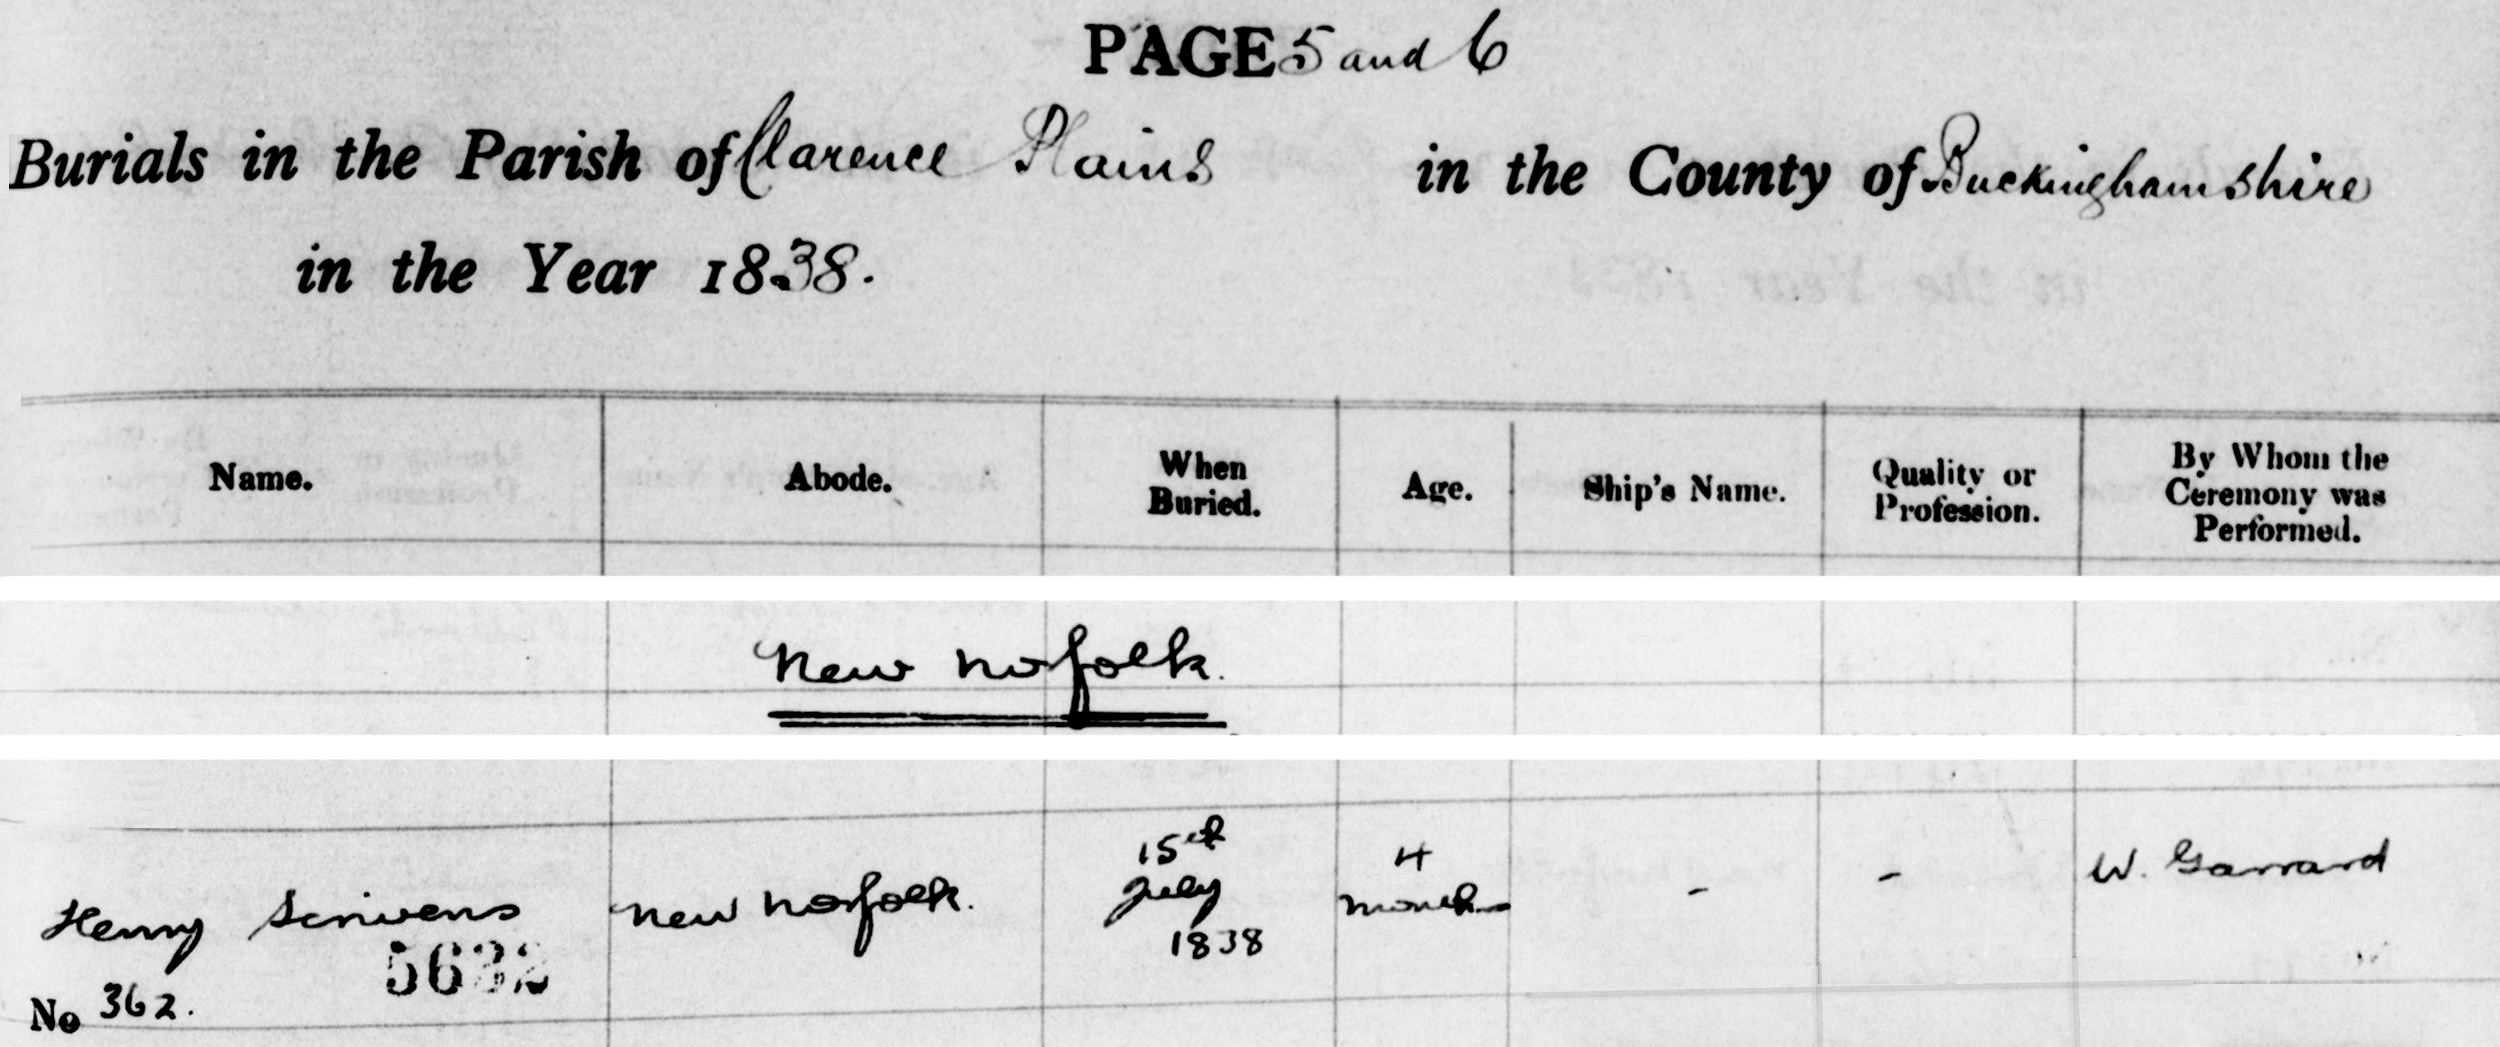 PAGE 5 and 6
Burials in the Parish of Clarence Plains in the County of Buckinghamshire
in the Year 1838.
Name. Abode. When Buried. Age. Ship's Name. Quality or Profession. By Whom the Ceremony was Performed.
New Nofolk.
Henry Scrivens New Norfolk. 15th July 1838 4 months - - W. Garrard
5632
No 362.